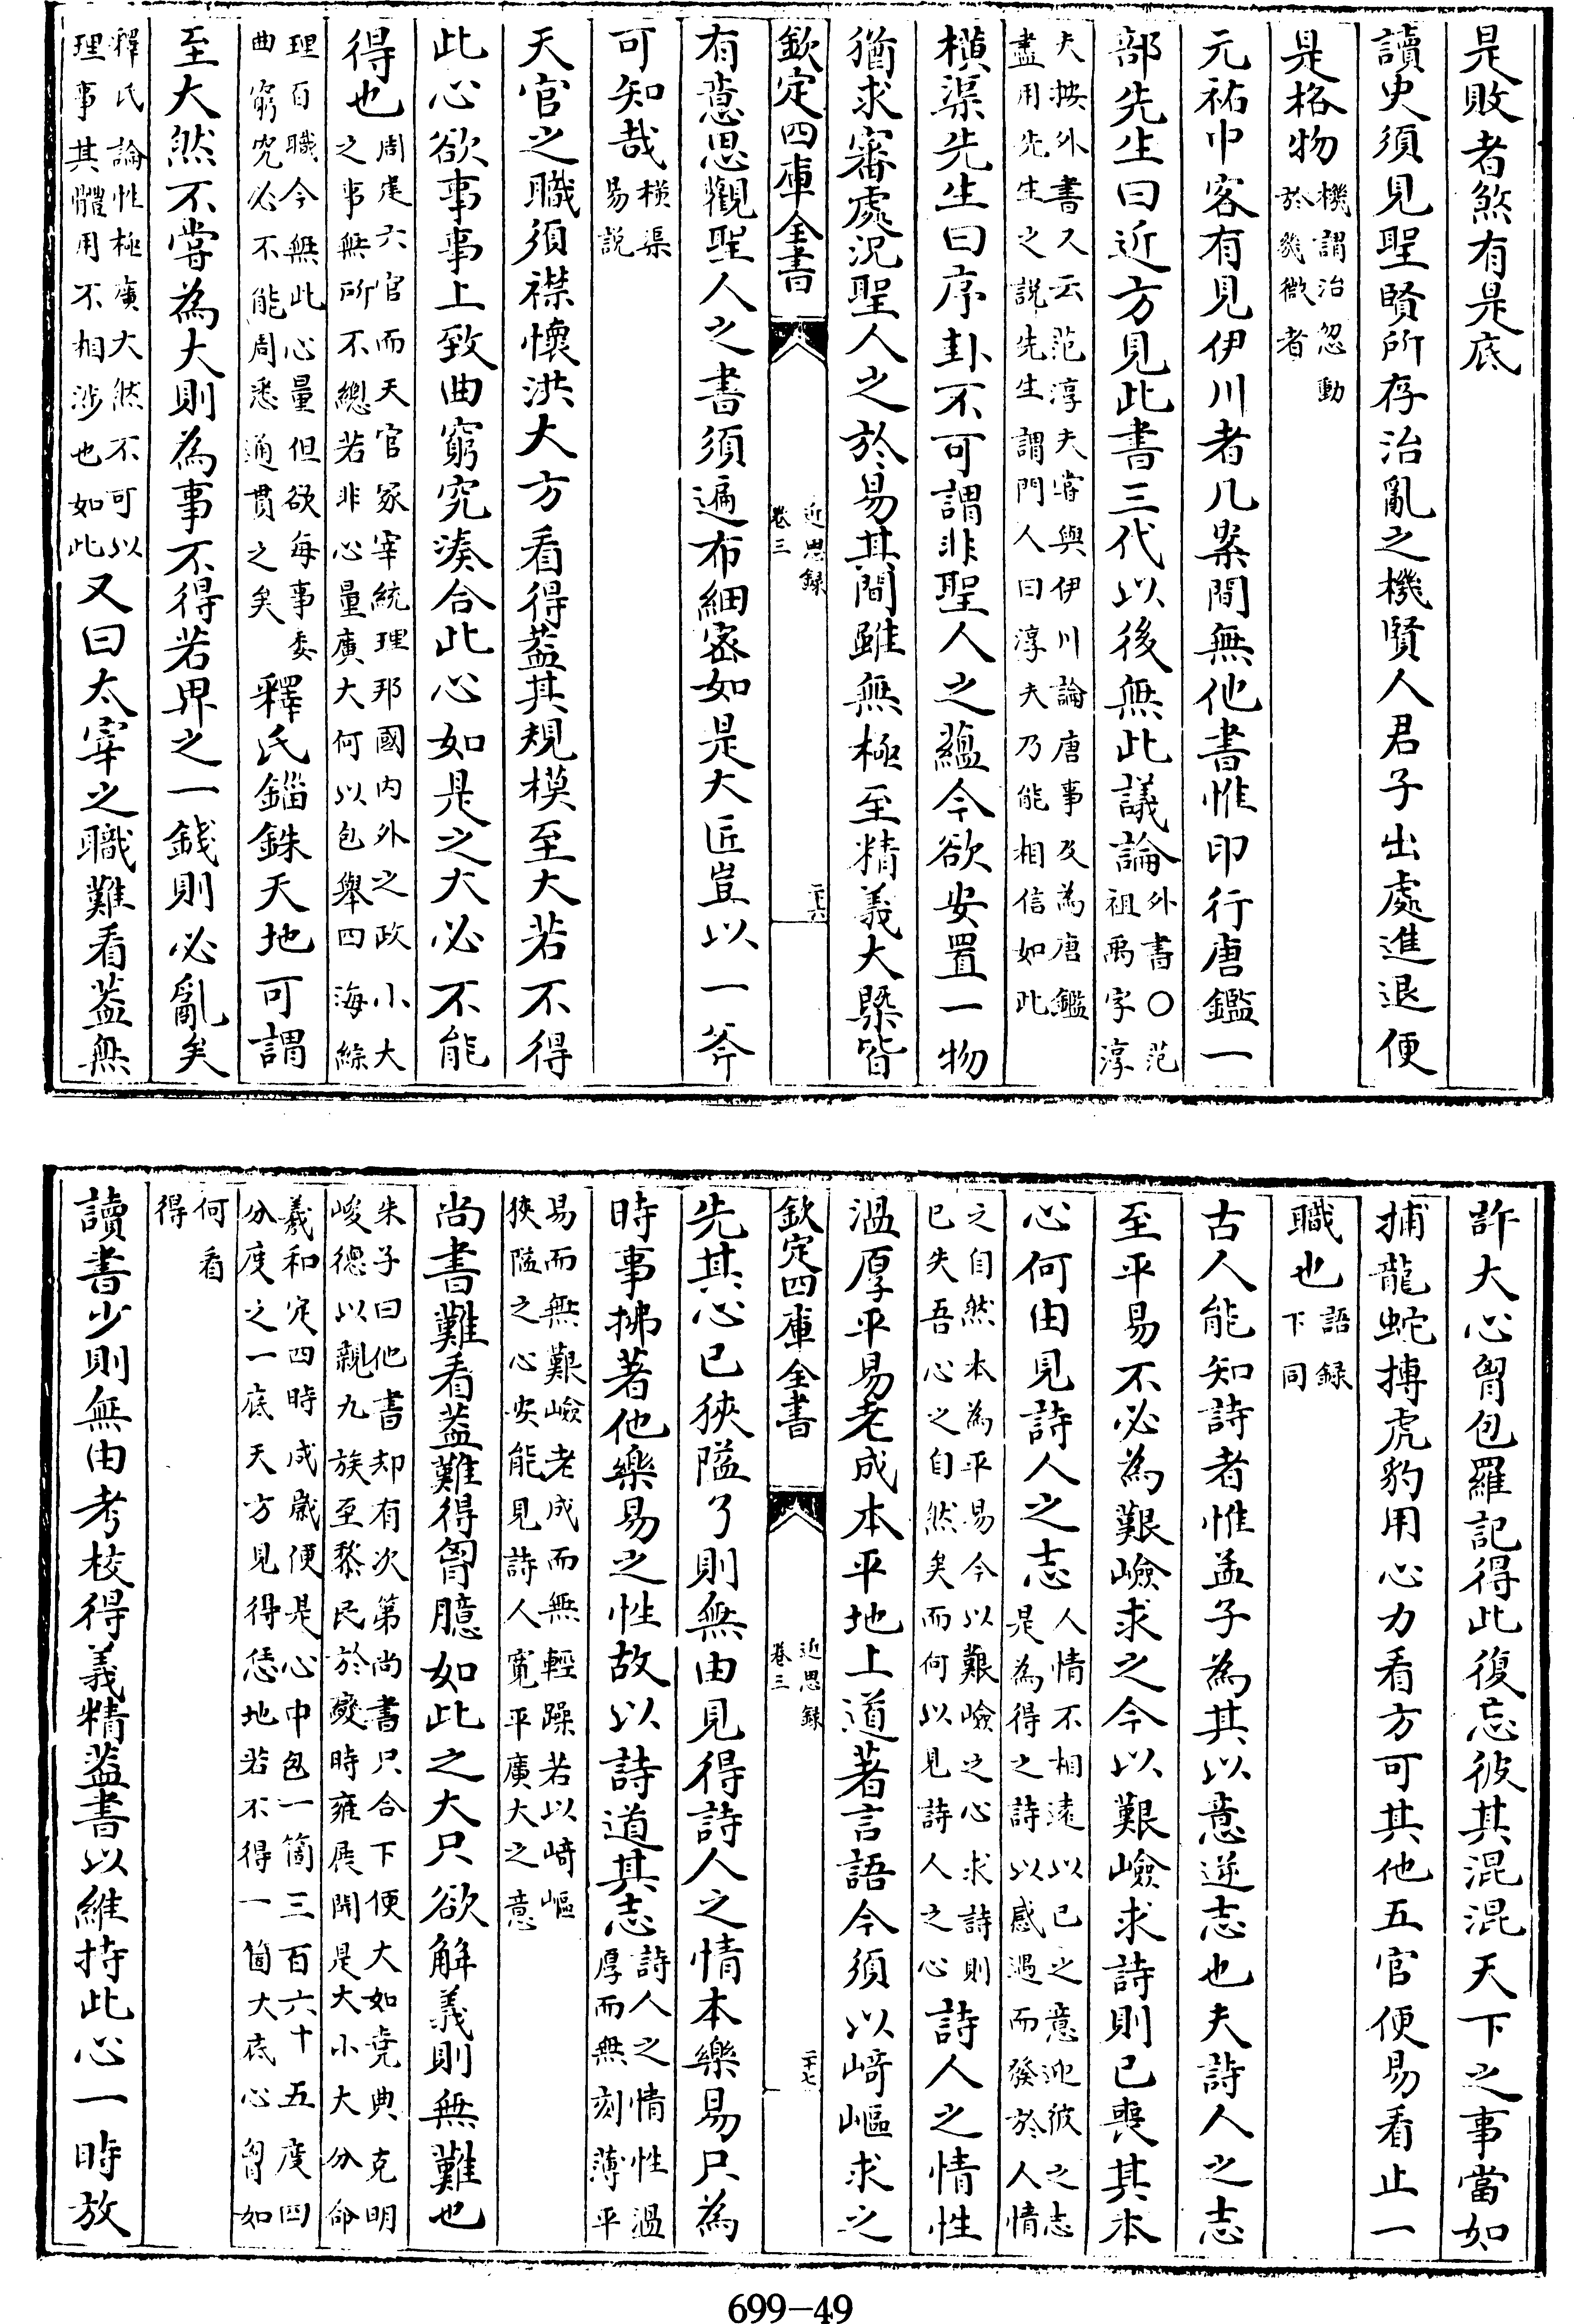 是敗者煞有是底
讀史須見聖賢所存治亂之機賢人君子出處進退便
是格物機謂治忽動於幾微者
元祐中客有見伊川者几案間無他書惟印行唐鑑一
部先生曰近方見此書三代以後無此議論外書〇范祖禹字淳
夫按外書又云范淳夫嘗與伊川論唐事及為唐鑑盡用先生之說先生謂門人曰淳夫乃能相信如此
橫渠先生曰序卦不可謂非聖人之蘊今欲安置一物
猶求審處況聖人之於易其間雖無極至精義大槩皆
欽定四庫全書 近思錄卷三 二十六
有意思觀聖人之書須遍布細密如是大匠豈以一斧
可知哉橫渠易說
天官之職須襟懷洪大方看得葢其規模至大若不得
此心欲事事上致曲窮究湊合此心如是之大必不能
得也周建六官而天官冢宰統理邦國內外之政小大之事無所不總若非心量廣大何以包舉四海綜
理百職今無此心量但欲每事委曲窮究必不能周悉通貫之矣釋氏錙銖天地可謂
至大然不嘗為大則為事不得若畀之一錢則必亂矣
釋氏論性極廣大然不可以理事其體用不相涉也如此又曰太宰之職難看葢無
許大心胷包羅記得此復忘彼其混混天下之事當如
捕龍蛇搏虎豹用心力看方可其他五官便易看止一
職也語錄下同
古人能知詩者惟孟子為其以意逆志也夫詩人之志
至平易不必為艱嶮求之今以艱嶮求詩則已喪其本
心何由見詩人之志人情不相遠以已之意迎彼之志是為得之詩以感遇而發於人情
之自然本為平易今以艱嶮之心求詩則已失吾心之自然矣而何以見詩人之心詩人之情性
溫厚平易老成本平地上道著言語今須以﨑嶇求之
欽定四庫全書 近思錄卷三 二十七
先其心已狹隘了則無由見得詩人之情本樂易只為
時事拂著他樂易之性故以詩道其志詩人之情性溫厚而無刻薄平
易而無艱嶮老成而無輕躁若以﨑嶇狹隘之心安能見詩人寬平廣大之意
尚書難看葢難得胷臆如此之大只欲解義則無難也
朱子曰他書却有次第尚書只合下便大如堯典克明峻德以親九族至黎民於變時雍展開是大小大分命
羲和定四時成歲便是心中包一箇三百六十五度四分度之一底天方見得恁地若不得一箇大底心胷如
何看得
讀書少則無由考校得義精葢書以維持此心一時放
699-49